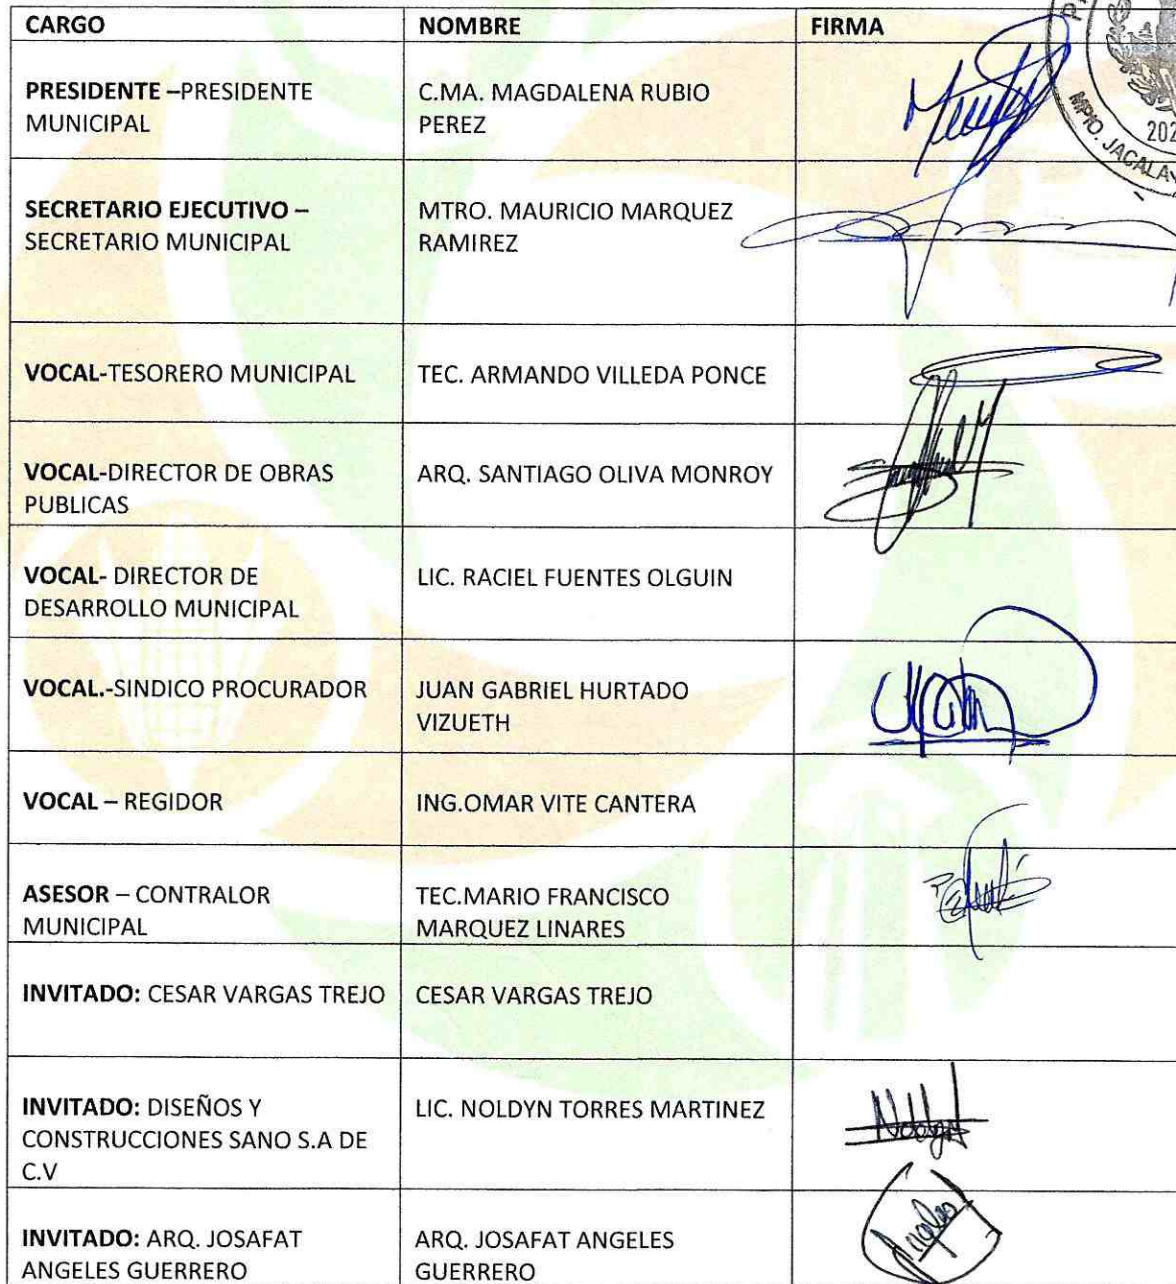 CARGO NOMBRE FIRMA
PRESIDENTE –PRESIDENTE
MUNICIPAL
C.MA. MAGDALENA RUBIO
PEREZ
SECRETARIO EJECUTIVO –
SECRETARIO MUNICIPAL
MTRO. MAURICIO MARQUEZ
RAMIREZ
VOCAL-TESORERO MUNICIPAL
TEC. ARMANDO VILLEDA PONCE
VOCAL-DIRECTOR DE OBRAS
PUBLICAS
ARQ. SANTIAGO OLIVA MONROY
VOCAL- DIRECTOR DE
DESARROLLO MUNICIPAL
LIC. RACIEL FUENTES OLGUIN
VOCAL.-SINDICO PROCURADOR
JUAN GABRIEL HURTADO
VIZUETH
VOCAL – REGIDOR
ING.OMAR VITE CANTERA
ASESOR – CONTRALOR
MUNICIPAL
TEC.MARIO FRANCISCO
MARQUEZ LINARES
INVITADO: CESAR VARGAS TREJO
CESAR VARGAS TREJO
INVITADO: DISEÑOS Y
CONSTRUCCIONES SANO S.A DE
C.V
LIC. NOLDYN TORRES MARTINEZ
INVITADO: ARQ. JOSAFAT
ANGELES GUERRERO
ARQ. JOSAFAT ANGELES
GUERRERO
202
MPIO. JACALA